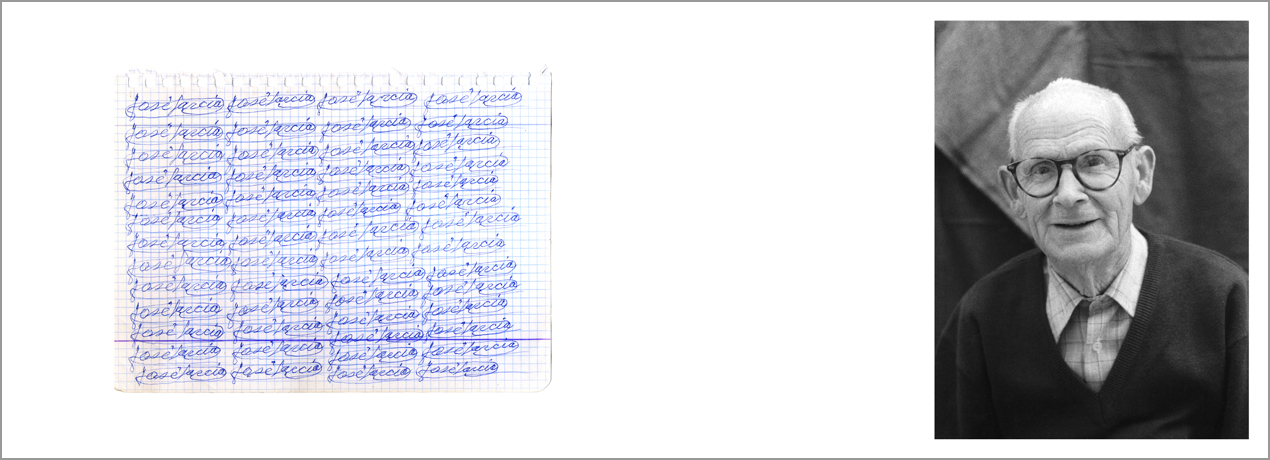 José García José García José García José García
José García José García José García José García
José García José García José García José García
José García José García José García José García
José García José García José García José García
José García José García José García José García
José García José García José García José García
José García José García José García José García
José García José García José García José García
José García José García José García José García
José García José García José García José García
José García José García José García José García
José García José García José García José García
José García José García